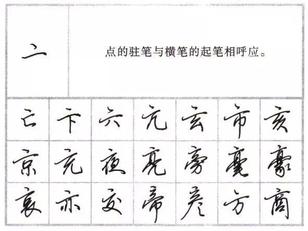 亠
点的驻笔与横笔的起笔相呼应。
亡 卞 六 亢 玄 市 亥
京 充 夜 亮 旁 毫 豪
哀 亦 交 帝 彦 方 商